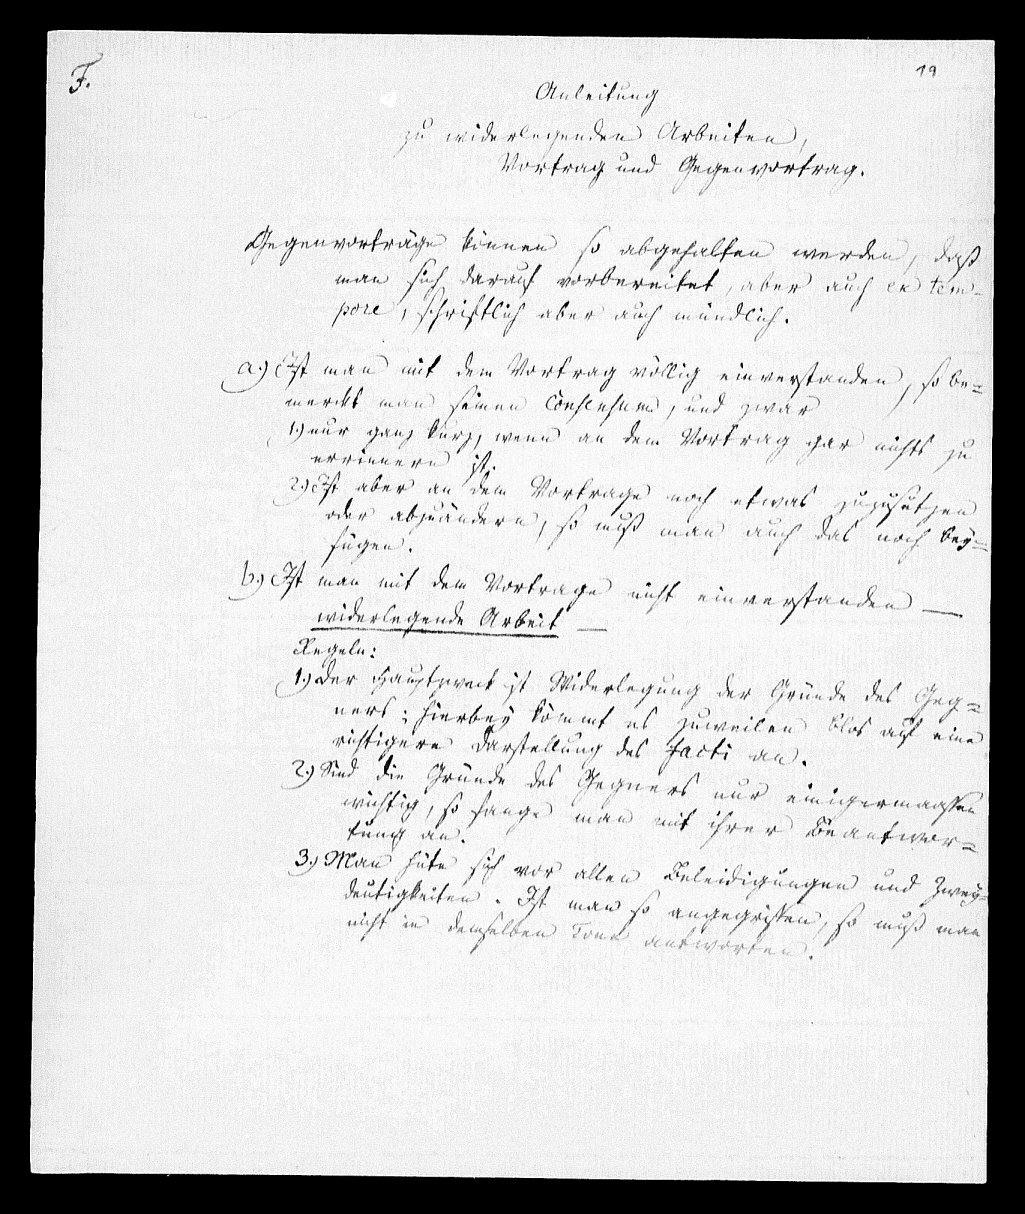 F.
19
Anleitung
zu widerlegenden Arbeiten,
Vortrag und Gegenvortrag.
Gegenvorträge können so abgehalten werden, daß
man sich darauf vorbereitet, aber auch ex tem-
pore, schriftlich aber auch mündlich.
a.) Ist man mit dem Vortrag völlig einverstanden, so be-
merckt man seinen Consensum, und zwar
1.) nur ganz kurz, wenn an dem Vortrag gar nichts zu
errinnern ist.
2.) Ist aber an dem Vortrage noch etwas zuzusetzen
oder abzuändern, so muß man auch das noch bey-
fügen.
b.) Ist man mit dem Vortrage nicht einverstanden —
widerlegende Arbeit —
Regeln:
1.) Der Hauptzweck ist Widerlegung der Gründe des Geg-
ners; hierbey kömmt es zuweilen blos auf eine
richtigere Darstellung des facti an.
2.) Sind die Gründe des Gegners nur einigermaassen
wichtig, so fange man mit ihrer Beantwor-
tung an.
3.) Man hüte sich vor allen Beleidigungen und Zwey-
deutigkeiten. Ist man so angegriffen, so muß man
nicht in demselben Tone antworten.